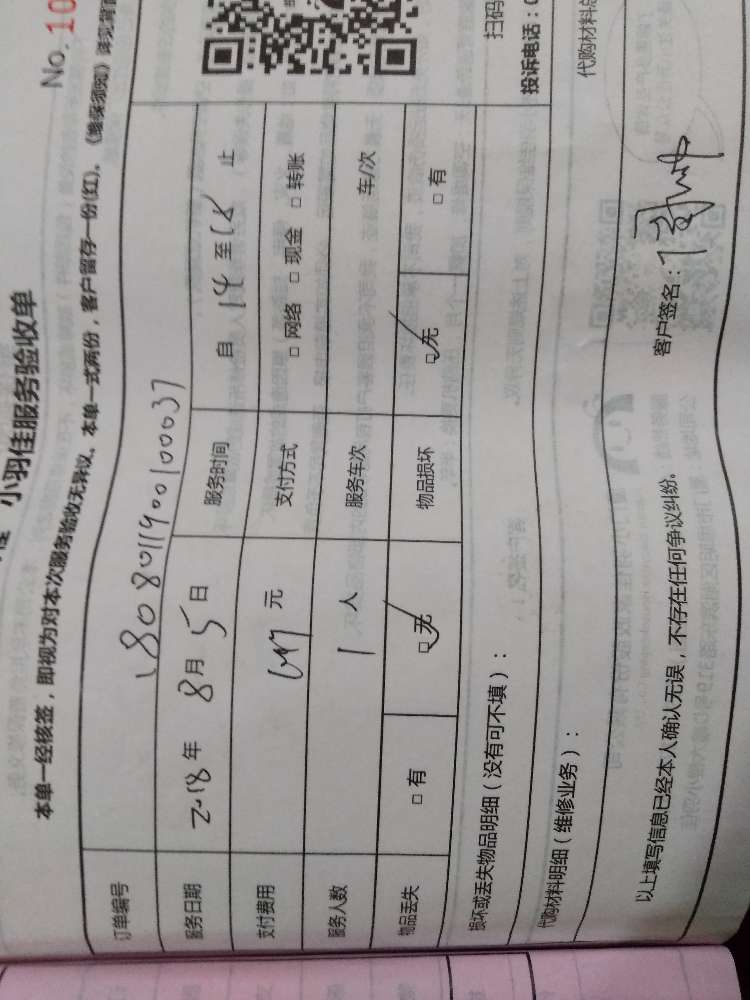 No.10
小羽佳服务验收单
本单一经核签，即视为对本次服务验收无异议。本单一式两份，客户留存一份(红)。《维保须知》详见背面
订单编号 180801190010037
服务日期 2018年 8月 5日 服务时间 自 14 至 18 止
支付费用 元 支付方式 □ 网络 □ 现金 □ 转账
服务人数 1 人 服务车次 车/次
物品丢失 □ 有 □ 无 物品损坏 □ 无 □ 有
损坏或丢失物品明细（没有可不填）：
扫码
投诉电话：0
代购材料明细（维修业务）：
代购材料总
以上填写信息已经本人确认无误，不存在任何争议纠纷。 客户签名：